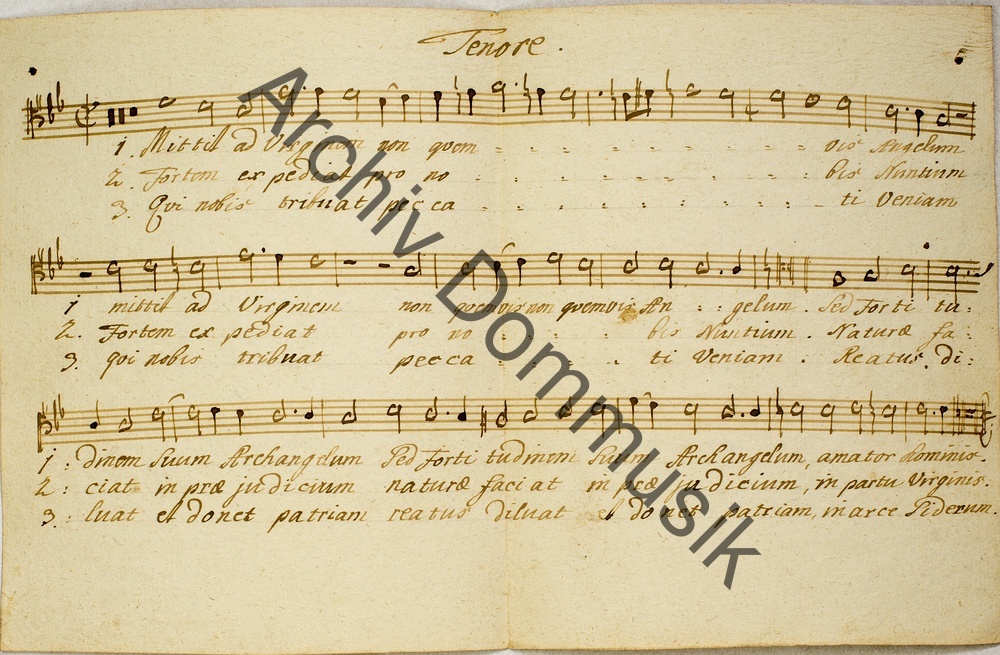 Tenore.
1. Mittit ad Virginem non quem - - - - - - - - - vis Angelum
2. Fortem ex pediat pro no - - - - - - - - - bis Nuntium
3. Qui nobis tribuat pecca - - - - - - - - - ti Veniam
1 mittit ad Virginem non quemvis non quemvis An - - gelum. Sed Forti tu-
2. Fortem ex pediat pro no - - - - bis Nuntium. Naturæ fa-
3. qui nobis tribuat pecca - - - - ti Veniam. Reatus di:
1: dinem Suum Archangelum Sed Forti tudinem Suum Archangelum, amator hominis.
2: ciat in præ judicium naturæ faciat in præ judicium, in partu Virginis.
3: luat et donet patriam reatus diluat et donet patriam, in arce Siderum.
Archiv Dommusik